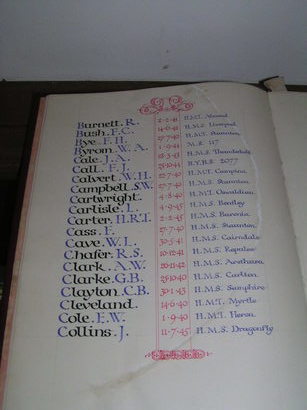 Burnett. R. 2-2-41 H.M.T. Almond
Bush. F.C. 14-6-41 H.M.S. Liverpool
Bye. F.H. 27-7-40 H.M.T. Staunton
Byrom. W.A. 1-4-40 M.S. 117
Cale. J.A. H.M.S. Thunderbolt
Call. F.J. 25-10-41 R.Y.B.S. 2077
Calvert. W.H. 22-7-40 H.M.T. Campina
Campbell. S.W. 27-7-40 H.M.S. Staunton
Cartwright. 4-7-40 H.M.T. Oswaldian
Carlisle. L. 4-9-45 H.M.S. Beatty
Carter. H.R.T. 2-2-45 H.M.S.
Cass. F. 27-7-40 H.M.S. Staunton
Cave. W.L. 30-5-41 H.M.S. Cairndale
Chafer. R.S. 10-12-41 H.M.S. Repulse
Clark. A.W. 20-11-42 H.M.S. Arethusa
Clarke. G.B. 25-10-41 H.M.S. Carlton
Clayton. C.B. 30-1-43 H.M.S. Samphire
Cleveland. 14-6-40 H.M.T. Myrtle
Cole. E.W. 1-9-40 H.M.T. Hersa
Collins. J. 11-7-45 H.M.S. Dragonfly